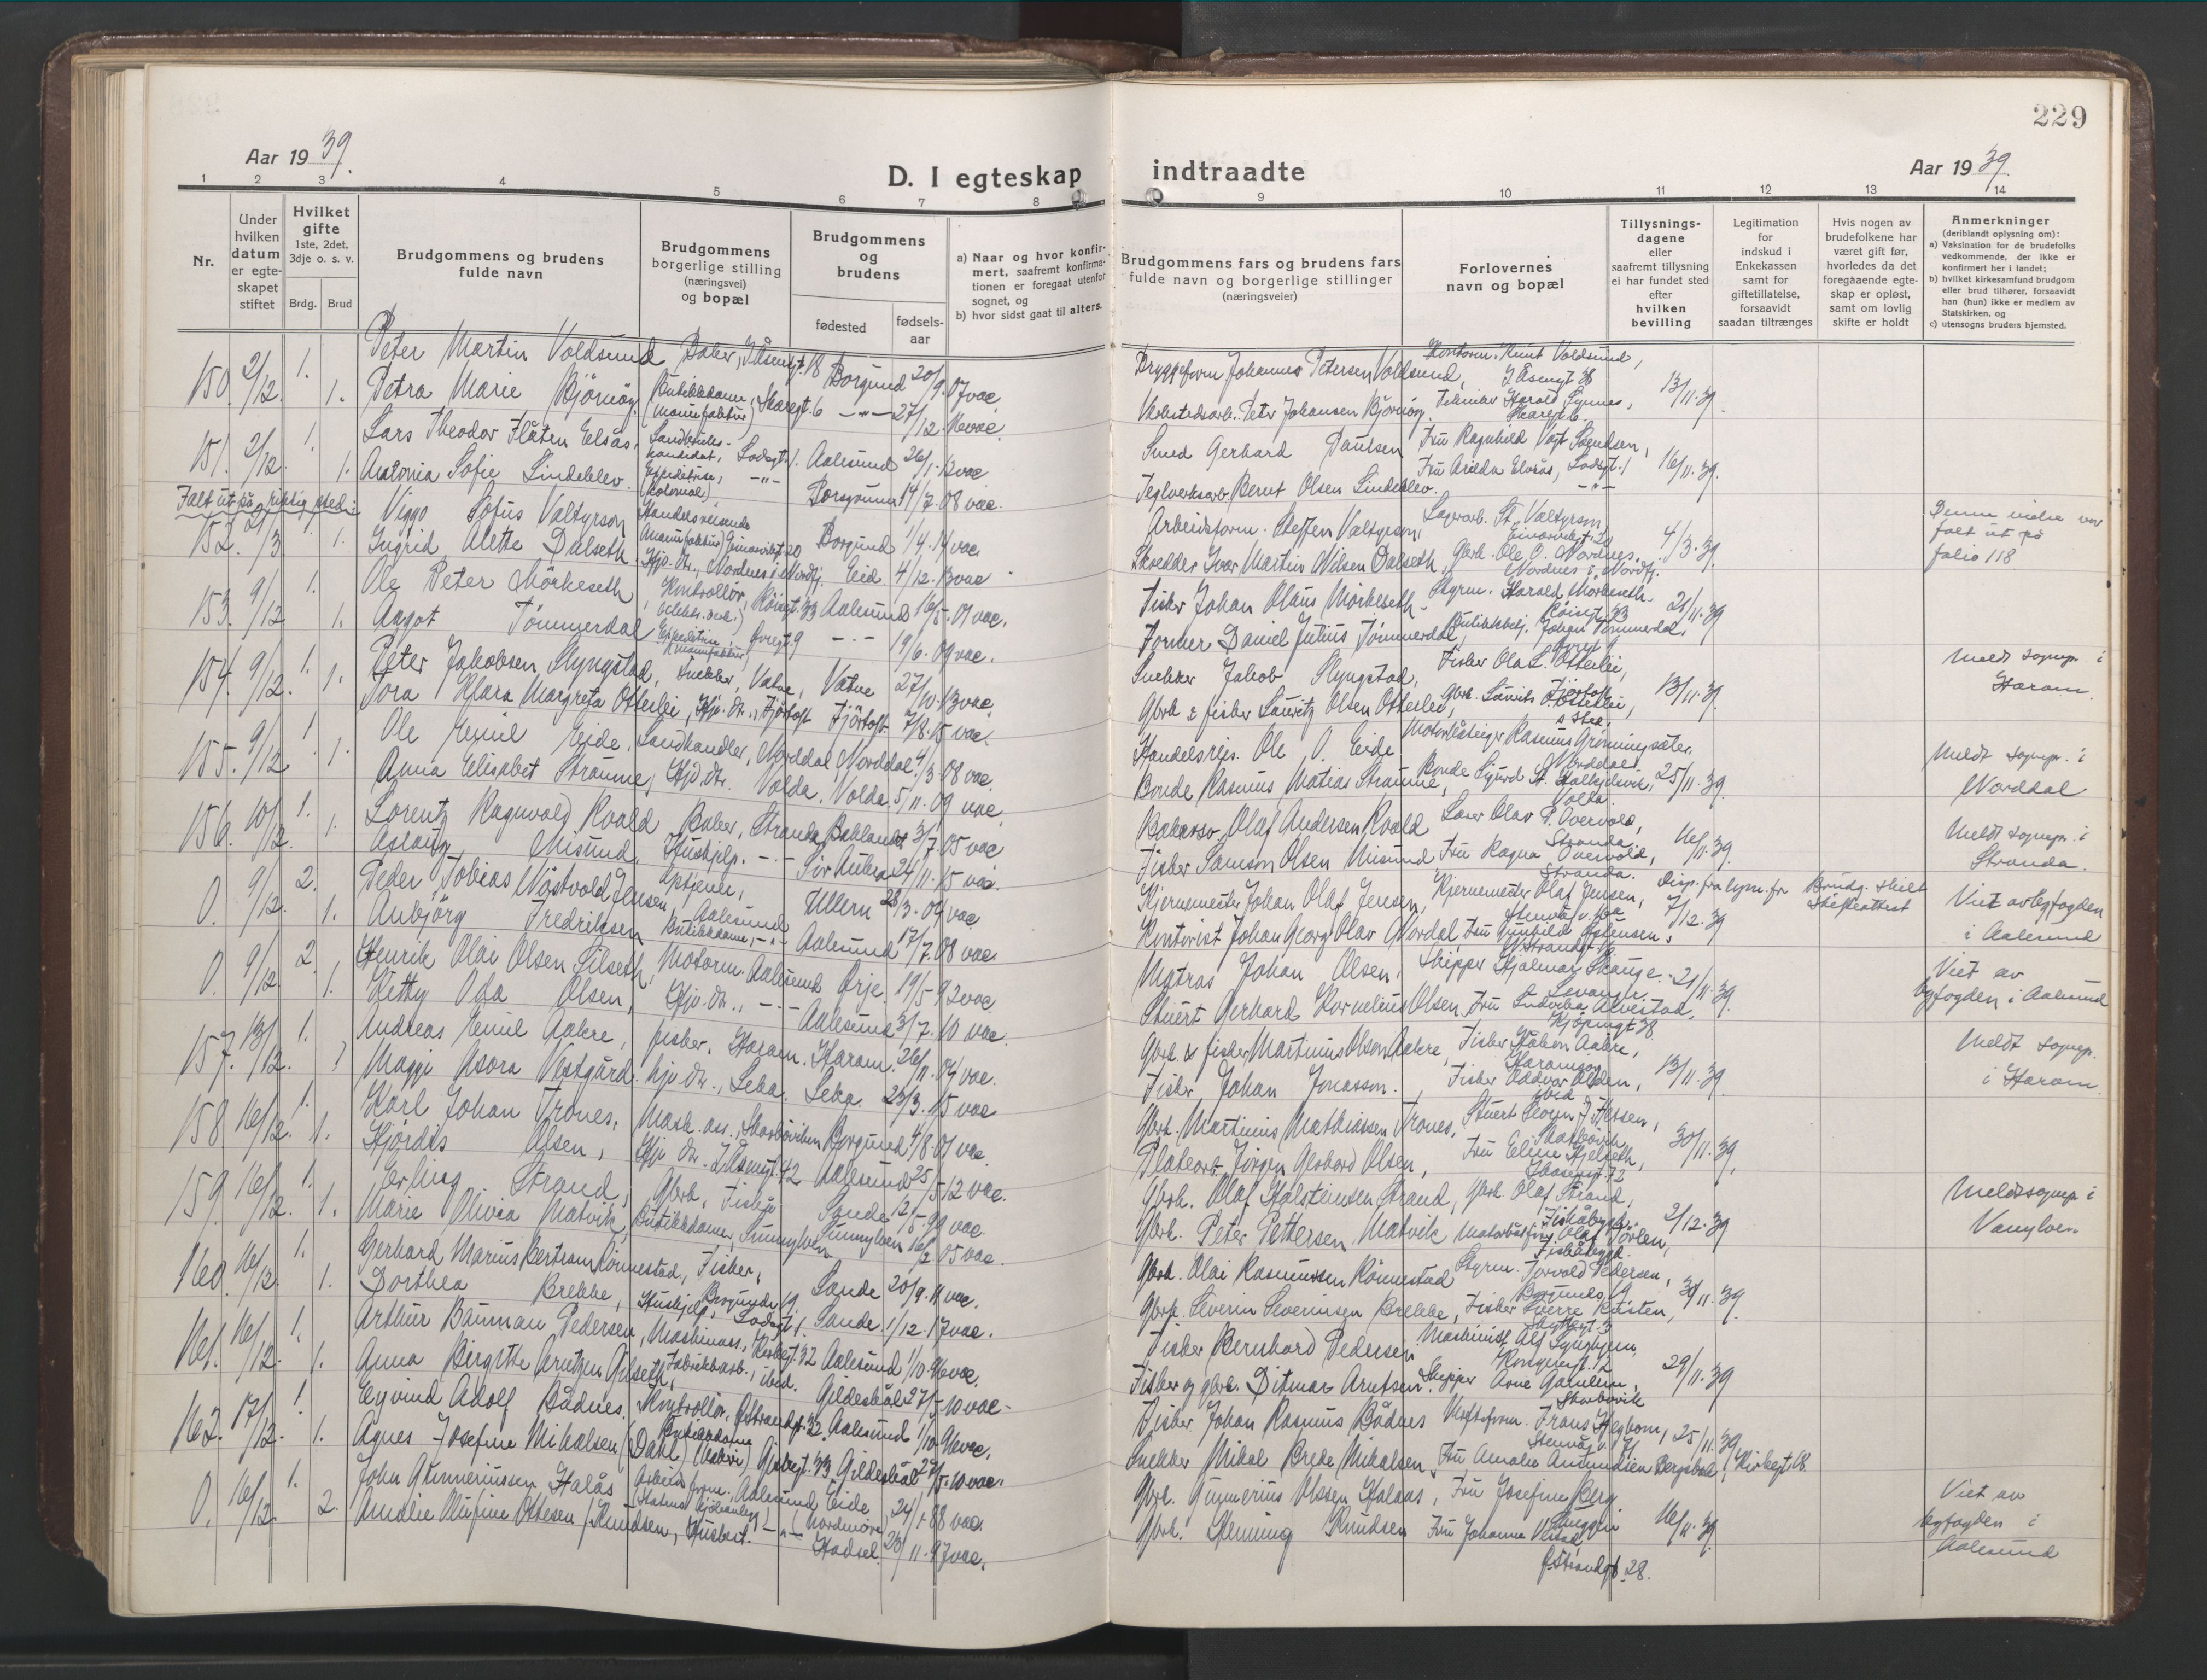 229
Aar 1939.
D. I egteskap indtraadte
Aar 1939
1 2 3 4 5 6 7 8 9 10 11 12 13 14
Nr.
Under hvilken datum er egteskapet stiftet
Hvilket gifte 1ste, 2det, 3dje o. s. v.
Brdg. Brud
Brudgommens og brudens fulde navn
Brudgommens borgerlige stilling (næringsvei) og bopæl
Brudgommens og brudens
fødested
fødsels-aar
a) Naar og hvor konfirmert, saafremt konfirmationen er foregaat utenfor sognet, og
b) hvor sidst gaat til alters.
Brudgommens fars og brudens fars fulde navn og borgerlige stillinger (næringsveier)
Forlovernes navn og bopæl
Tillysningsdagene eller saafremt tillysning ei har fundet sted efter hvilken bevilling
Legitimation for indskud i Enkekassen samt for giftetillatelse, forsaavidt saadan tiltrænges
Hvis nogen av brudefolkene har været gift før, hvorledes da det foregaaende egteskap er opløst, samt om lovlig skifte er holdt
Anmerkninger
(deriblandt oplysning om):
a) Vaksination for de brudefolks vedkommende, der ikke er konfirmert her i landet;
b) hvilket kirkesamfund brudgom eller brud tilhører, forsaavidt han (hun) ikke er medlem av Statskirken, og
c) utensogns bruders hjemsted.
150. 2/12. 1. Peter Martin Voldsund Baker, J. Åsengt. 18 Borgund 20/9. 07 vac. Bryggeform Johannes Petersen Voldsund, Kontorm. Knut Voldsund, J. Åsengt 38 13/11. 39.
1. Petra Marie Bjørnøy. Butikkdame, (manufaktur) Skaregt. 6 -"- 27/12. 16 vac. Verkstedsarb. Peter Johansen Bjørnøy Tekniker Harald Synnes, Skaregt. 6.
151. 2/12. 1. Lars Theodor Flåten Elsås, Landbrukskandidat, Lodsgt. 1. Aalesund 26/1. 12 vac. Smed Gerhard Paulsen Fru Ragnhild Vågt Svendsen, 16/11. 39.
1. Antonia Sofie Lindeblev. Expeditrise, (kolonial) -"- Porsgrunn 14/7. 08 vac. Teglverksarb. Bernt Olsen Lindeblev. Fru Arilda Elsås, Lodsgt. 1
Falt ut på riktig sted:
152. 29/3. 1. Viggo Sofus Valtyrson Handelsreisende (manufaktur) Einarvikgt. 20 Borgund 1/4. 14 vac. Arbeidsform. Steffen Valtyrson, Lagerarb. St. Valtyrson, Einarvikgt. 20 4/3. 39.
1. Ingrid Alette Dalseth Hjp. dtr., Nordnes i Nordfj. Eid 4/12. 13 vac Skredder Ivar Martin Nilsen Dalseth, Gbrk. Ole O. Nordnes, Nordnes i Nordfj.
Denne vielse var falt ut på folio 118
153. 9/12 1. Ole Peter Mørkeseth Kontrollør, (elektr. verk.) Røisgt. 33 Aalesund 16/5. 07 vac. Fisker Johan Olaus Mørkeseth Styrm. Harald Mørkeseth, Røisgt 33 21/11. 39
1. Aagot Tømmerdal Expeditrise, (manufaktur) Øvregt. 9 -"- 19/6. 09 vac. Former Daniel Julius Tømmerdal, Butikkbetj. Johan Tømmerdal,
154. 9/12. 1. Peter Jakobsen Slyngstad, Snekker, Vatne, Vatne 27/10. 13 vac. Snekker Jakob Slyngstad, Fisker Ola L. Otterlei, Fjørtoft 13/11. 39. Meldt sognepr. i Haram.
1. Tora Klara Margreta Otterlei, Hjp. dtr., Fjørtoft Fjørtoft 7/8. 15 vac. Gbrk & fisker Lauritz Olsen Otterlei, Gbrk. Laurits O. Otterlei,
155. 9/12. 1. Ole Emil Eide, Landhandler, Norddal, Norddal. 4/3. 08 vac. Handelsrejs. Ole O. Eide Rasmus Grønningsæter, Norddal. 25/11. 39. Meldt sognepr. i Norddal
1. Anna Elisabet Straume, Hjp. dtr. Volda, Volda 5/11. 09 vac. Bonde Rasmus Matias Straume, Bonde Sigurd St. Volda.
156. 10/12. 1. Lorentz Ragnvald Roald Baker, Stranda, 3/7. 05 vac Olaf Andersen Roald Lærer Olav P. Overvold, Stranda. 16/11. 39. Meldt sognepr. i Stranda.
1. Aslaug Misund, Hushjelp. -"- Sør Aukra 24/11. 15 vac. Fisker Samson Olsen Misund Fru Ragna Overvold, Stranda.
0. 9/12. 2. Peder Tobias Nøstvold Jensen, Aalesund Ullern 28/3. 04 vac Hjernemester Johan Olaf Jensen, Hjernemester Olaf Jensen, Disp. fra lysn. fr. 7/12. 39 Brudg. skilt Skifteattest Viet av byfogden i Aalesund
1. Anbjørg Fredriksen Butikkdame, -"- Aalesund 17/7. 08 vac. Kontorist Johan Georg Olav Nordal, Fru Gunhild
0. 9/12. 2. Henrik Olai Olsen Silseth, Motorm. Aalesund Ørje. 19/5. 92 vac. Matros Johan Olsen, Skipper Hjalmar Skauge, Levanger 21/11. 39. Viet av byfogden i Aalesund
1. Hetty Oda Olsen, Hjp. dtr., -"- Aalesund 3/7. 10 vac. Stuert Gerhard Kornelius Olsen, Fru Ludvika Alvestad, Kjøpmgt. 38.
157. 13/12. 1. Andreas Emil Aakre, fisker, Haram. Haram. 26/11. 04 vac. Gbrk & fisker Martinus Olson Aakre, Fisker Håkon Aakre, 13/11. 39. Meldt sognepr. i Haram
1 Maggi Asora Vestgård. hjp. dtr., Leka. Leka. 23/3. 15 vac Fisker, Johan Jonasson. Fisker Oddvar Olden,
158 16/12. 1. Karl Johan Trones, Mask. ass., Skarbøviken Borgund 4/8. 01 vac. Gbrk. Martinus Mathiassen Trones, Stuert Georg J. Hessen, Skarbøvik 30/11. 39.
1. Hjørdis Olsen, Hjp. dtr. J. Åsengt. 42 Aalesund 25/5. 12 vac. Platearb. Jørgen Gerhard Olsen, Fru Eline Hjelseth,
159. 16/12. 1. Erling Strand, Gbrk, Fiskå. Sande 12/5. 99 vac. Gbrk. Olaf Holstensen Strand, Gbrk Olaf Strand, Fiskåbygd 2/12. 39 Meldt sognepr. i Vanylven
1. Marie Olivia Matvik, Butikkdame, Sunnylven Sunnylven 16/2. 05 vac. Gbrk. Peter Pettersen Matvik Olaf Sørlen, Fiskåbygd.
160 16/12. 1. Gerhard Marius Bertram Rønnestad, Fisker, Borgundv. 19. Sande 20/9. 11 vac. Gbrk. Olai Rasmussen Rønnestad Styrm. Torvald Pedersen, Borgundv. 19 30/11. 39.
1. Dorthea Brekke, Hushjelp, Lodsgt 1. Sande 1/12. 17 vac. Gbrk. Severin Severinsen Brekke, Fisker Sverre Riksten,
161. 16/12. 1. Arthur Bauman Pedersen, Maskinass., Kirkegt. 32 Aalesund 1/10. 96 vac. Fisker Bernhard Pedersen Maskinist Alf Lyngbjørn, 29/11. 39
1. Anna Birgitte Arntzen Gilseth, Fabrikkarb., ibid. Gildeskål 27/5. 10 vac. Fisker og gbrk. Ditmar Arntsen, Skipper Arne Gamlem, Skarbøvik
162. 17/12. 1. Eyvind Adolf Bådnes, Kontrollør, Ø. Strandgt. 32, Aalesund 1/10. 96 vac. Fisker Johan Rasmus Bådnes Frans Hegbom, 25/11. 39
1. Agnes Josefine Mikalsen (Dahl) Butikkdame Gjobegt. 33 Gildeskål 27/5. 10 vac. Snekker Mikal Brede Mikalsen, Fru Amalie Amundsen Bergsbak, Kirkegt. 18.
0. 16/12. 1. John Gunneriussen Halås Arbeidsform., Aalesund Eide (Nordmøre) 24/1. 88 vac. Gbrk. Gunnerius Olssen Halaas, Fru Josefine Berg, 16/11. 39. Viet av byfogden i Aalesund
2. Amalie Olufine Ottesen (Knudsen, Husbest. -"- Hadsel 23/11. 97 vac. Gbrk. Henning Knudsen Fru Johanne
Ø. Strandgt. 28.